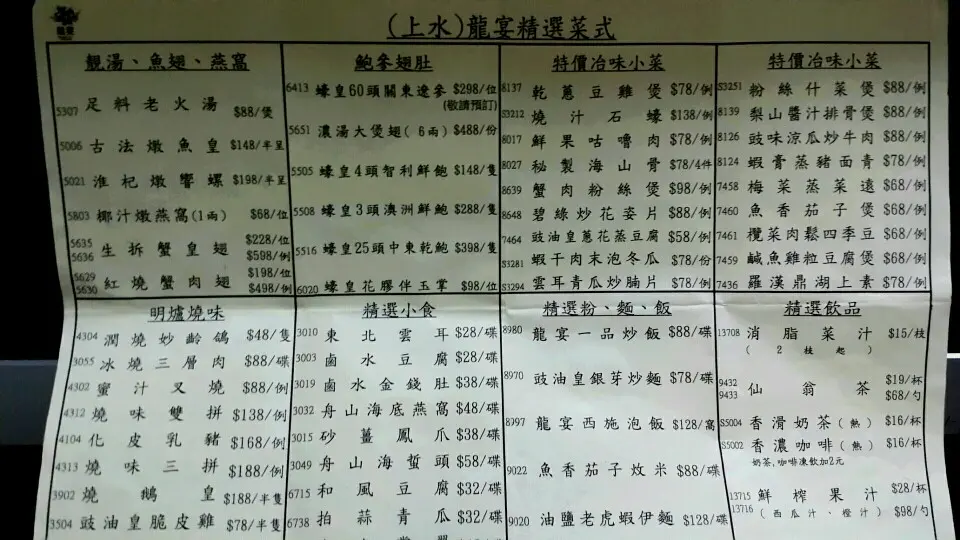 (上水)龍宴精選菜式
靚湯、魚翅、燕窩
5307 足料老火湯 $88/煲
5006 古法燉魚皇 $148/半呈
5021 淮杞燉響螺 $198/半呈
5803 椰汁燉燕窩(1両) $68/位
5635 5636 生拆蟹皇翅 $228/位 $598/例
5629 5630 紅燒蟹肉翅 $198/位 $498/例
鮑參翅肚
6413 蠔皇60頭關東遼參 $298/位
(敬請預訂)
5651 濃湯大煲翅(6両) $488/份
5505 蠔皇4頭智利鮮鮑 $148/隻
5508 蠔皇3頭澳洲鮮鮑 $288/隻
5516 蠔皇25頭中東乾鮑 $398/隻
6020 蠔皇花膠伴玉掌 $98/位
特價冶味小菜
8137 乾蔥豆雞煲 $78/例
S3212 燒汁石蠔 $138/例
8017 鮮果咕嚕肉 $78/例
8027 秘製海山骨 $78/4件
8639 蟹肉粉絲煲 $98/例
8648 碧綠炒花姿片 $88/例
7464 豉油皇蔥花蒸豆腐 $58/例
S3281 蝦干肉末泡冬瓜 $78/份
S3294 雲耳青瓜炒腩片 $78/例
特價冶味小菜
S3251 粉絲什菜煲 $88/例
8139 梨山醬汁排骨煲 $88/例
8126 豉味涼瓜炒牛肉 $88/例
8124 蝦膏蒸豬面青 $78/例
7458 梅菜蒸菜遠 $68/例
7460 魚香茄子煲 $68/例
7461 欖菜肉鬆四季豆 $68/例
7459 鹹魚雞粒豆腐煲 $68/例
7436 羅漢鼎湖上素 $78/例
明爐燒味
4304 潤燒妙齡鴿 $48/隻
3055 冰燒三層肉 $88/碟
4302 蜜汁叉燒 $88/例
4312 燒味雙拼 $138/例
4104 化皮乳豬 $168/例
4313 燒味三拼 $188/例
3902 燒鵝皇 $188/半隻
3504 豉油皇脆皮雞 $78/半隻
精選小食
3010 東北雲耳 $28/碟
3003 鹵水豆腐 $28/碟
3019 鹵水金錢肚 $38/碟
3032 舟山海底燕窩 $48/碟
3015 砂薑鳳爪 $38/碟
3049 舟山海蜇頭 $58/碟
6715 和風豆腐 $32/碟
6738 拍蒜青瓜 $32/碟
精選粉、麵、飯
8980 龍宴一品炒飯 $88/碟
8970 豉油皇銀芽炒麵 $78/碟
8997 龍宴西施泡飯 $128/窩
9022 魚香茄子炆米 $88/碟
9020 油鹽老虎蝦伊麵 $128/碟
精選飲品
13708 消脂菜汁 $15/枝
(2枝起)
9432 9433 仙翁茶 $19/杯 $68/勺
S5004 香滑奶茶(熱) $16/杯
S5002 香濃咖啡(熱) $16/杯
奶茶,咖啡凍飲加2元
13715 鮮榨果汁 $28/杯
13716 (西瓜汁、橙汁) $98/勺